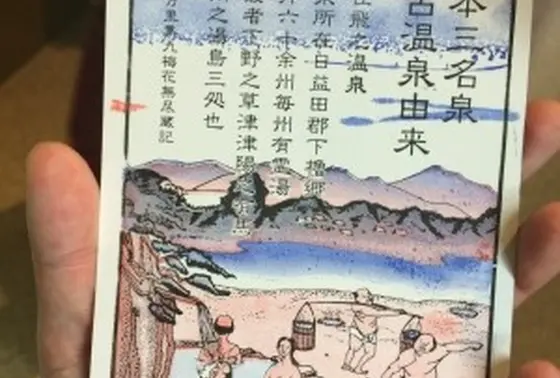 本三名泉
古温泉由来
在飛之温泉
泉所在日益田郡下擔郷
六十余州毎州有霊湯
者下野之草津津陽之有馬
州之湯島三処也
万里集九梅花無尽蔵記